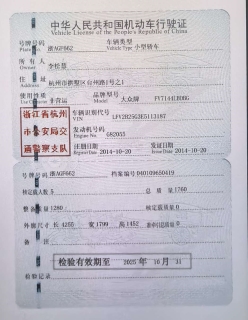 中华人民共和国机动车行驶证
Vehicle License of the People's Republic of China
号牌号码 浙AGF662 车辆类型 小型轿车
Plate No. Vehicle Type
所有人
Owner
住址 杭州市拱墅区台州路1号之1
使用性质 非营运 品牌型号 大众牌
Use Character Model
浙江省杭州
市公安局交
通警察支队
车辆识别代号
VIN
发动机号码 682055
Engine No.
注册日期 2014-10-20 发证日期 2014-10-20
Register Date Issue Date
号牌号码 浙AGF662 档案编号
核定载人数 5 总质量 1760
整备质量 1280 核定载质量
外廓尺寸 长 4255 宽 1799 高 1452 准牵引总质量
备注
检验有效期至 2025年10月31
检验记录